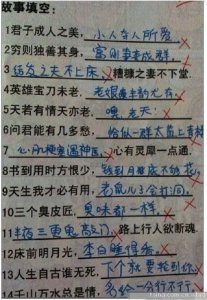 故事填空:
1君子成人之美,小人夺人所爱
2穷则独善其身,富则妻妾成群。
3结发之夫不上床,糟糠之妻不下堂。
4英雄宝刀未老,老娘风韵犹存。
5天若有情天亦老,噢,老天!
6问君能有几多愁,恰似一群太监上青楼
7心肌梗塞遇神医,心有灵犀一点通。
8书到用时方恨少,钱到月底不够花
9天生我才必有用,老鼠儿子会打洞。
10三个臭皮匠,臭味都一样。
11半夜三更鬼敲门,路上行人欲断魂。
12床前明月光,李白睡得香。
13人生自古谁无死,下个就要轮到你
14千山万水总是情,多给一分行不行